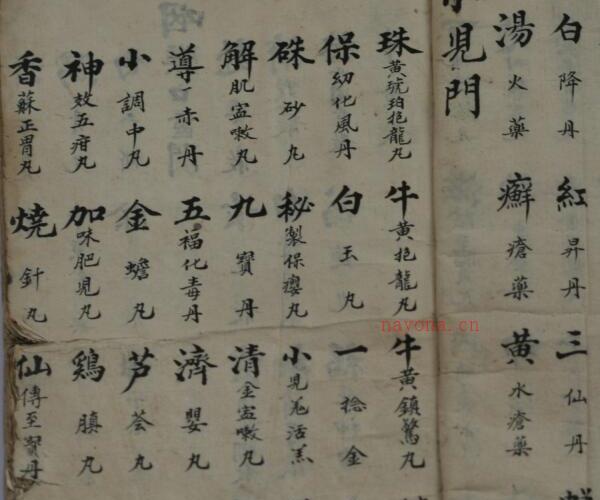 白降丹 紅昇丹 三仙丹
湯火藥 癬瘡藥 黃水瘡藥
小兒門
珠黃琥珀抱龍丸 牛黃抱龍丸 牛黃鎮驚丸
保幼化風丹 白玉丸 一捻金
硃砂丸 秘製保嬰丸 小兒羌活
解肌寧嗽丸 九寶丹 清金寧嗽丸
導赤丹 五福化毒丹 濟嬰丸
小調中丸 金蟾丸 芦薈丸
神效五疳丸 加味肥兒丸 鷄丸
香蘇正胃丸 燒針丸 仙傳至寶丹
nayona.cn